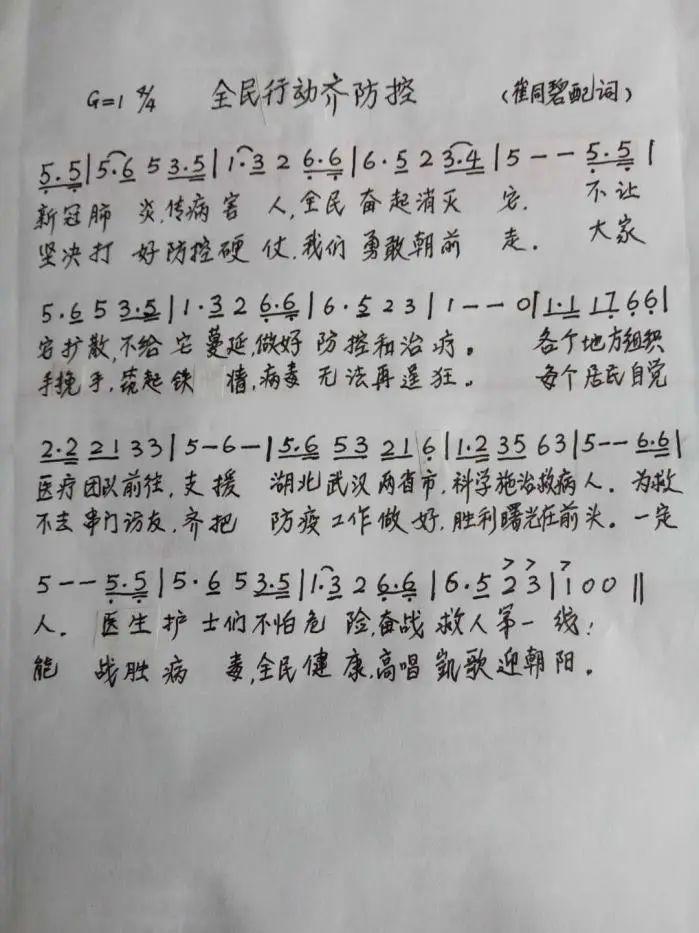 G=1 4/4 全民行动齐防控 (崔同碧配词)
5.5|5.6 5 3.5|1.3 2 6.6|6.5 2 3.4|5 - - 5.5|
新冠肺 炎,传病害 人,全民 奋起消灭 它. 不让
坚决打 好防控硬 仗,我们 勇敢朝前 走. 大家
5.6 5 3.5|1.3 2 6.6|6.5 2 3|1 - - 0|1.1 17 66|
它扩散,不给 它 蔓延,做好 防控和治疗。 各个地方组织
手挽手,筑起铁 墙,病毒 无法再逞狂。 每个居民自觉
2.2 21 33|5-6-|5.6 53 21 6|1.2 35 63|5-- 6.6|
医疗团队前往,支援 湖北武汉两省市,科学施治救病人. 为救
不去串门访友,齐把 防疫工作做好,胜利曙光在前头。一定
5 -- 5.5|5.6 5 3.5|1.3 2 6.6|6.5 2 3|1 0 0‖
人. 医生护 士们不怕危 险,奋战 救人第一线;
能 战胜病 毒,全民健 康,高唱 凯歌迎朝阳.